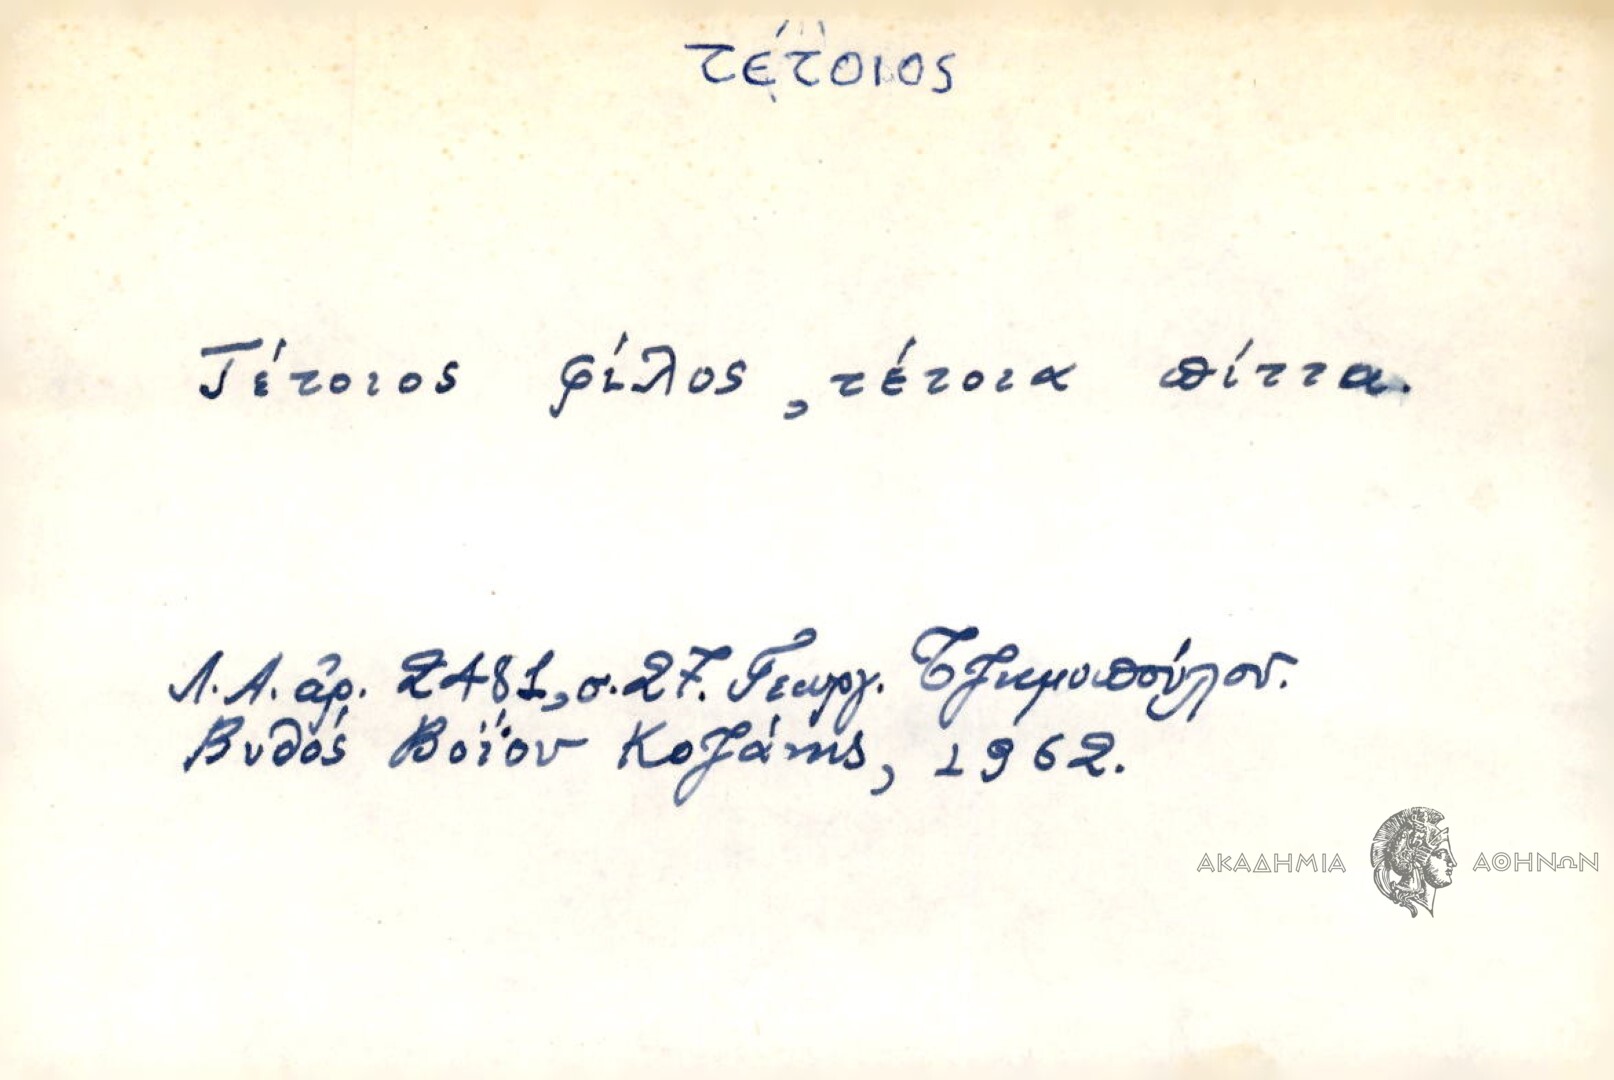 τέτοιος
Τέτοιος φίλος, τέτοια πίττα.
Λ.Α. ἀρ. 2481, σ. 27. Γεωργ. Τζημοπούλου.
Βυθός Βοΐου Κοζάνης, 1962.
ΑΚΑΔΗΜΙΑ ΑΘΗΝΩΝ